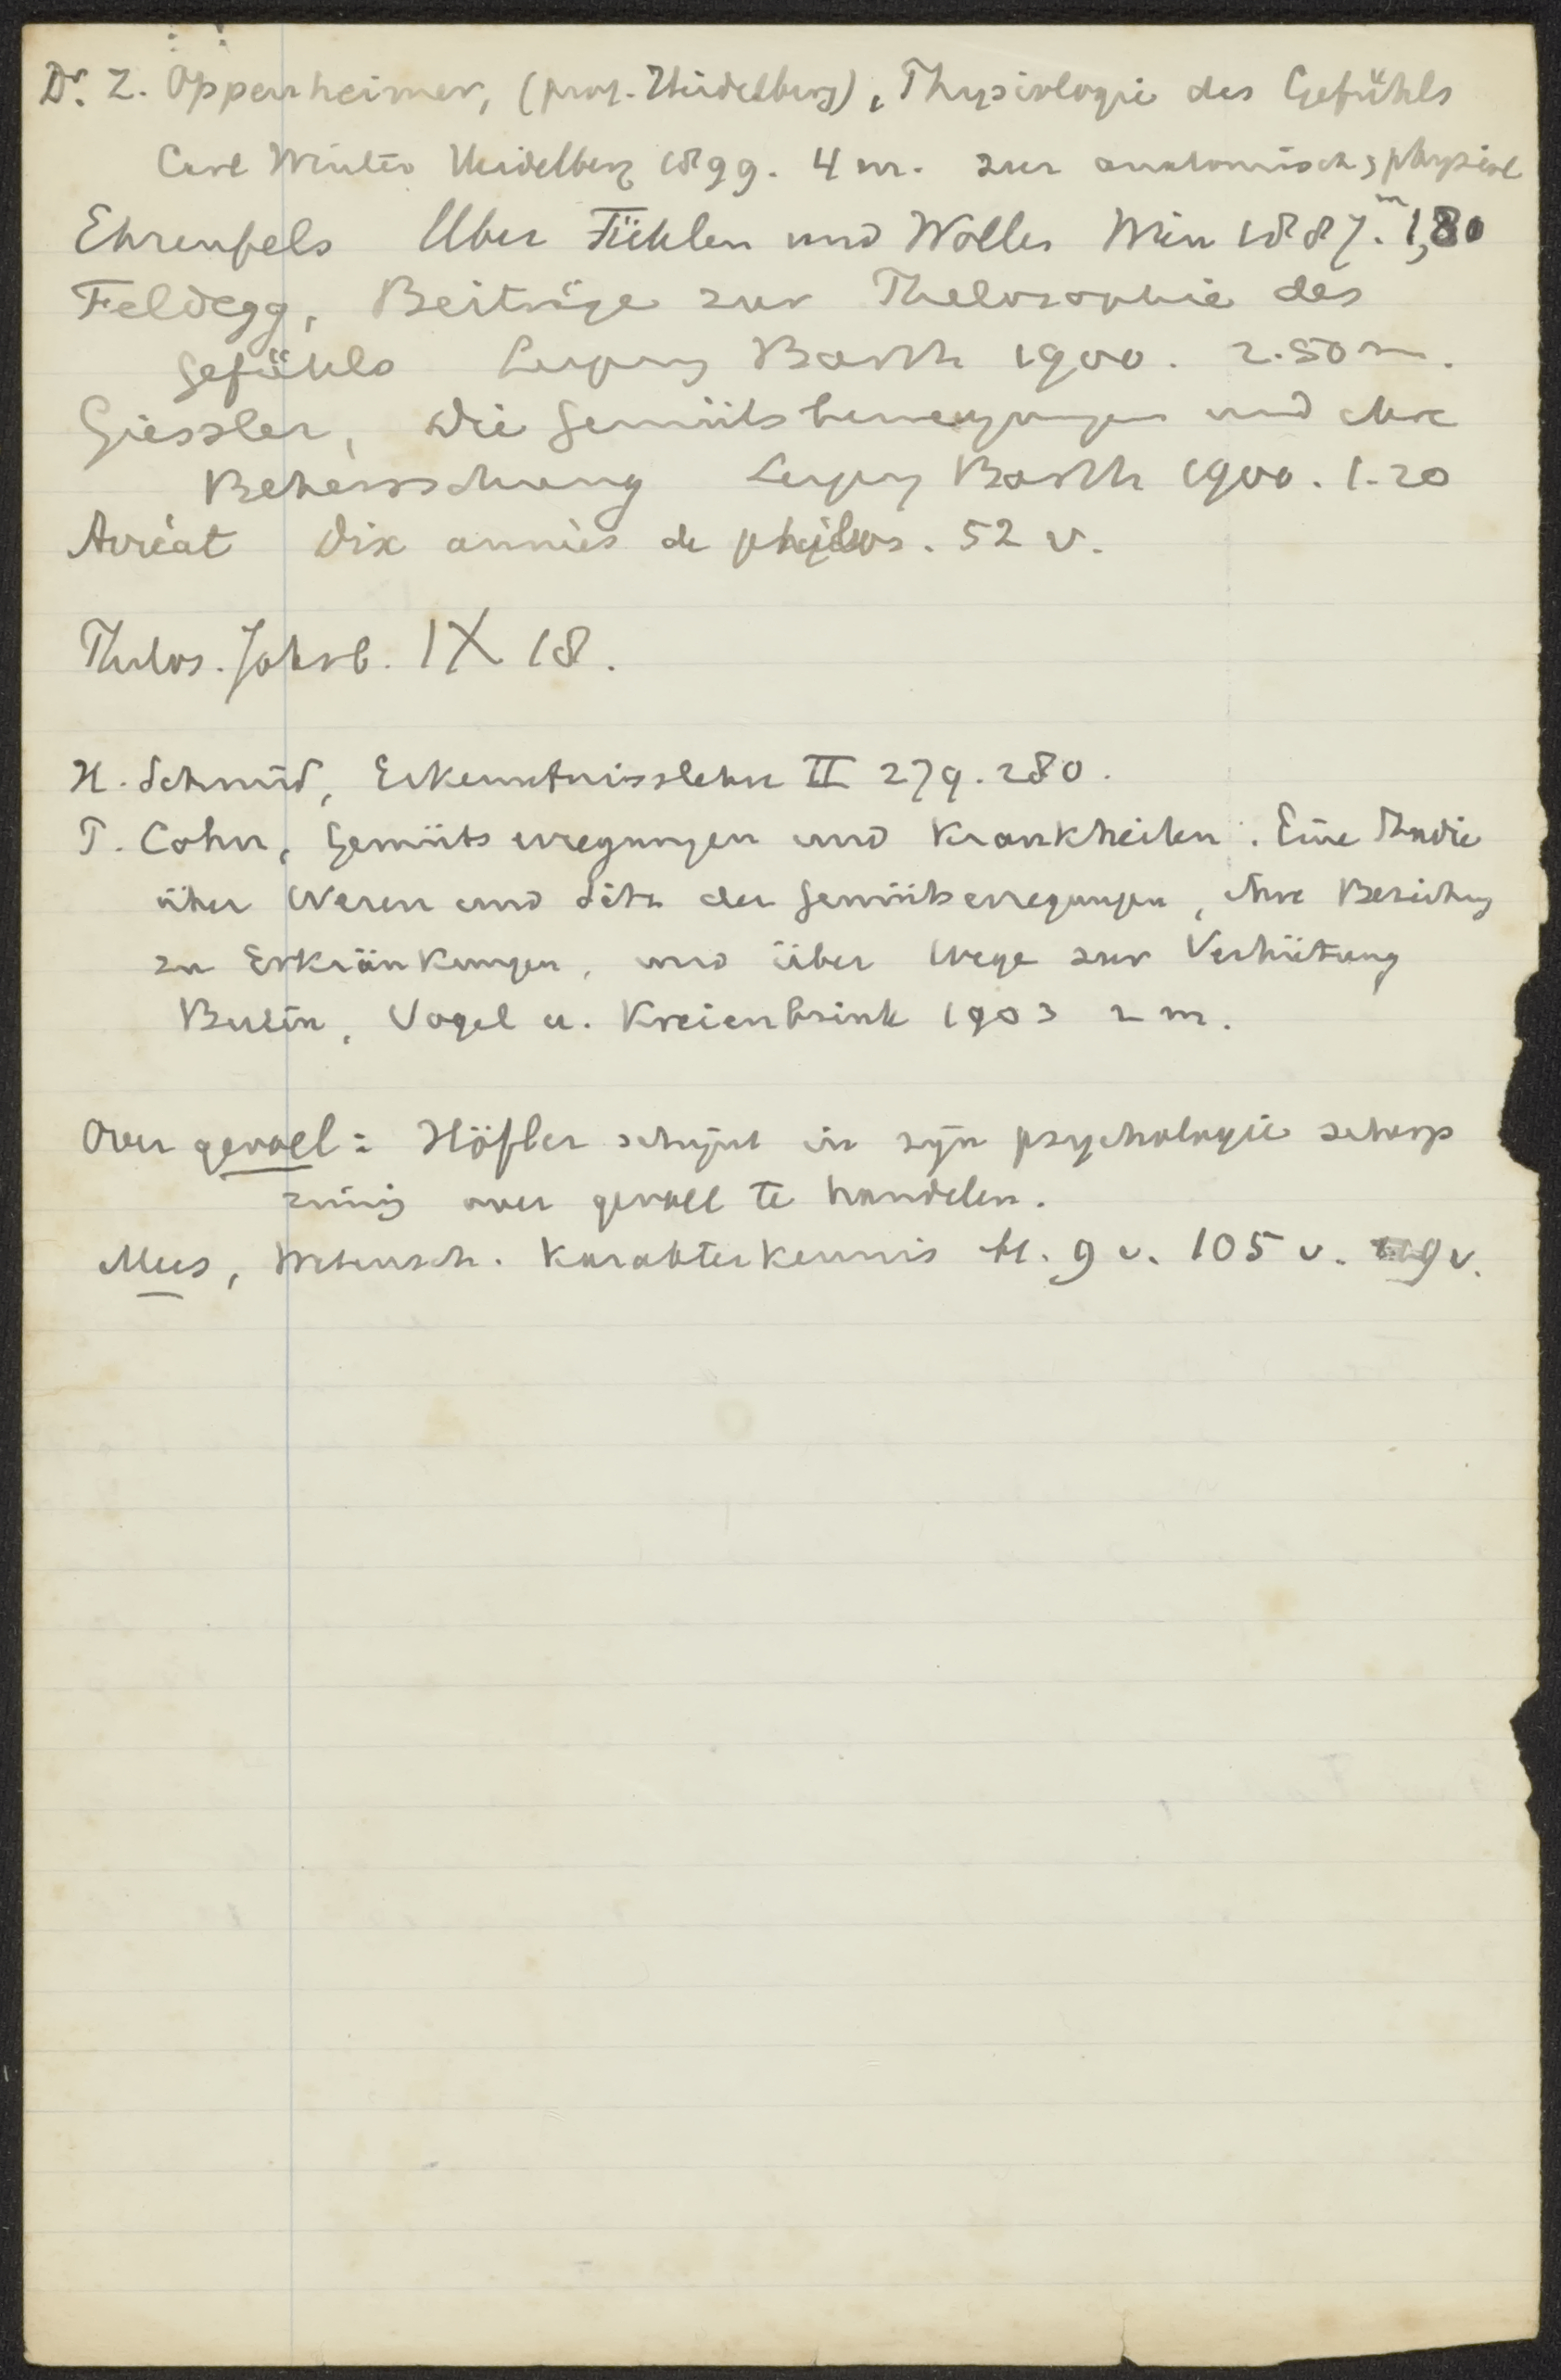 Dr. Z. Oppenheimer, (prof. Heidelberg), Physiologie des Gefühls
Carl Winter Heidelberg 1899. 4 m. zur anatomisch, physiol
Ehrenfels Über Fühlen und Wollen Wien 1887. m 1,80
Feldegg, Beiträge zur Philosophie des
Gefühls Leipzig Barth 1900. 2.50 m.
Giessler, Die Gemütsbewegungen und ihre
Beherrschung Leipzig Barth 1900. 1.20
Arréat Dix années de philos. 52 v.
Philos. Jahrb. IX 18.
H. Schmid, Erkenntnisslehre II 279. 280.
T. Cohn, Gemütserregungen und Krankheiten. Eine Studie
über Wesen und Sitz der Gemütserregungen, ihre Beziehung
zu Erkränkungen, und über Wege zur Verhütung
Berlin, Vogel u. Kreienbrink 1903 2 m.
Over gevoel: Höfler schijnt in zijn psychologie scherp
zinnig over gevoel te handelen.
Mees, Wetensch. Karakterkennis bl. 9 v. 105 v. 9 v.